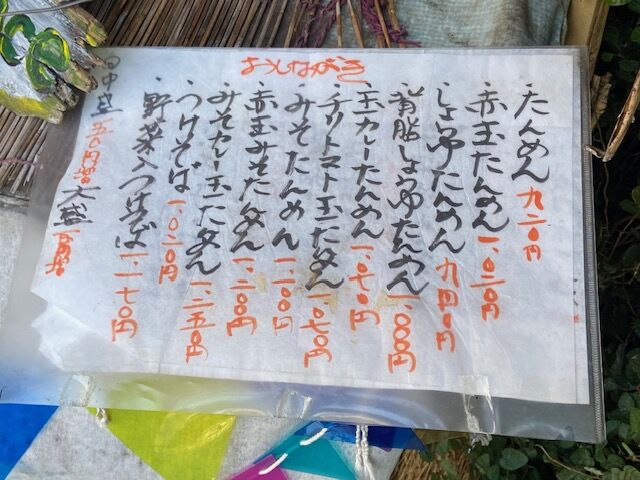 おしながき
・たんめん 九二〇円
・赤玉たんめん 一、〇二〇円
・しょうゆたんめん 九四〇円
・背脂しょうゆたんめん 一、〇〇〇円
・玉カレーたんめん 一、〇七〇円
・チリトマト玉たんめん 一、〇七〇円
・みそたんめん 一、一〇〇円
・赤玉みそたんめん 一、二〇〇円
・みそカレー玉たんめん 一、二五〇円
・つけそば 一、〇二〇円
・野菜入つけそば 一、一七〇円
中盛 五〇円増 大盛